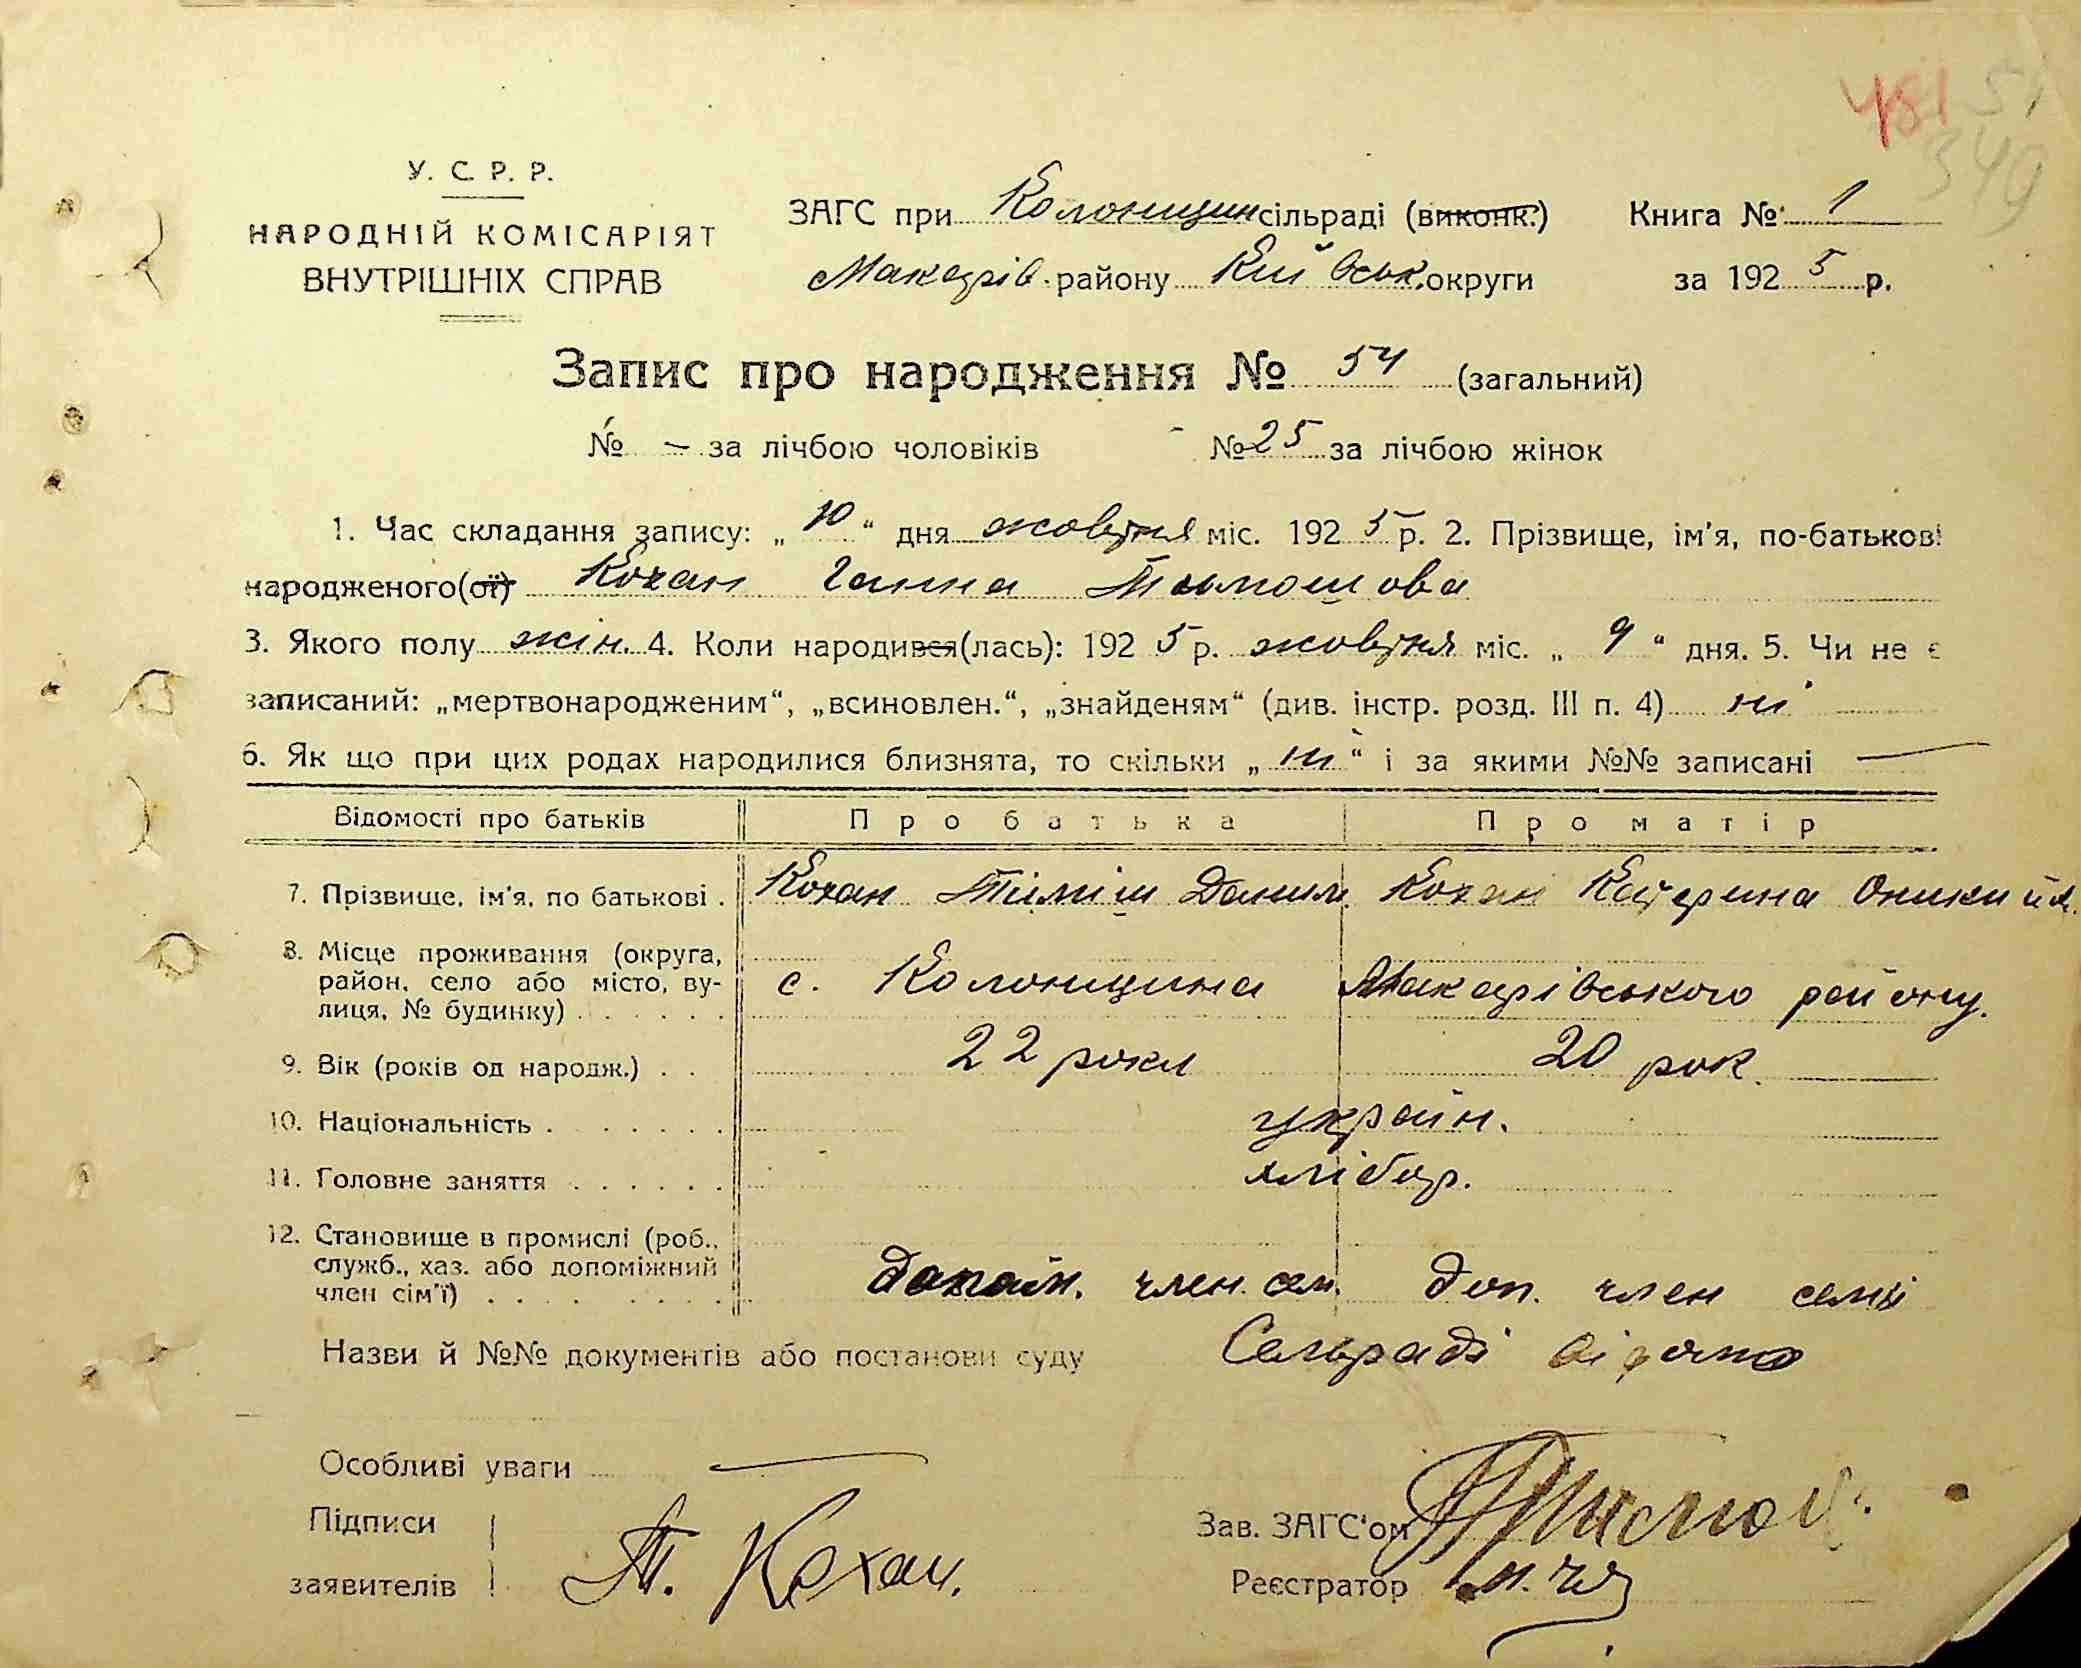 481 51
349
У. С. Р. Р.
НАРОДНІЙ КОМІСАРІЯТ
ВНУТРІШНІХ СПРАВ
ЗАГС при Колонщин сільраді (виконк.) Книга № 1
Макарів. району Київськ. округи за 192 5 р.
Запис про народження № 54 (загальний)
№ — за лічбою чоловіків № 25 за лічбою жінок
1. Час складання запису: „ 10 “ дня жовтня міс. 192 5 р. 2. Прізвище, ім'я, по-батькові
народженого(ої) Кохан Ганна Тимошова
3. Якого полу жін. 4. Коли народився(лась): 192 5 р. жовтня міс. „ 9 “ дня. 5. Чи не є
записаний: „мертвонародженим“, „всиновлен.“, „знайденям“ (див. інстр. розд. III п. 4) ні
6. Як що при цих родах народилися близнята, то скільки „ ні “ і за якими №№ записані —
Відомості про батьків Про батька Про матір
7. Прізвище, ім'я, по батькові . Кохан Тіміш Данил. Кохан Катерина Оникийв.
8. Місце проживання (округа,
район, село або місто, ву-
лиця, № будинку) . . . . . . с. Колонщина Макарівського району.
9. Вік (років од народж.) . . 22 роки 20 рок.
10. Національність . . . . . . . україн.
11. Головне заняття . . . . . . хлібор.
12. Становище в промислі (роб.,
служб., хаз. або допоміжний
член сім'ї) . . . . . . . . член. сем. доп. член семьї
Назви й №№ документів або постанови суду Сельраді відомо
Особливі уваги —
Підписи
заявителів Т. Кохан.
Зав. ЗАГС'ом
Реєстратор